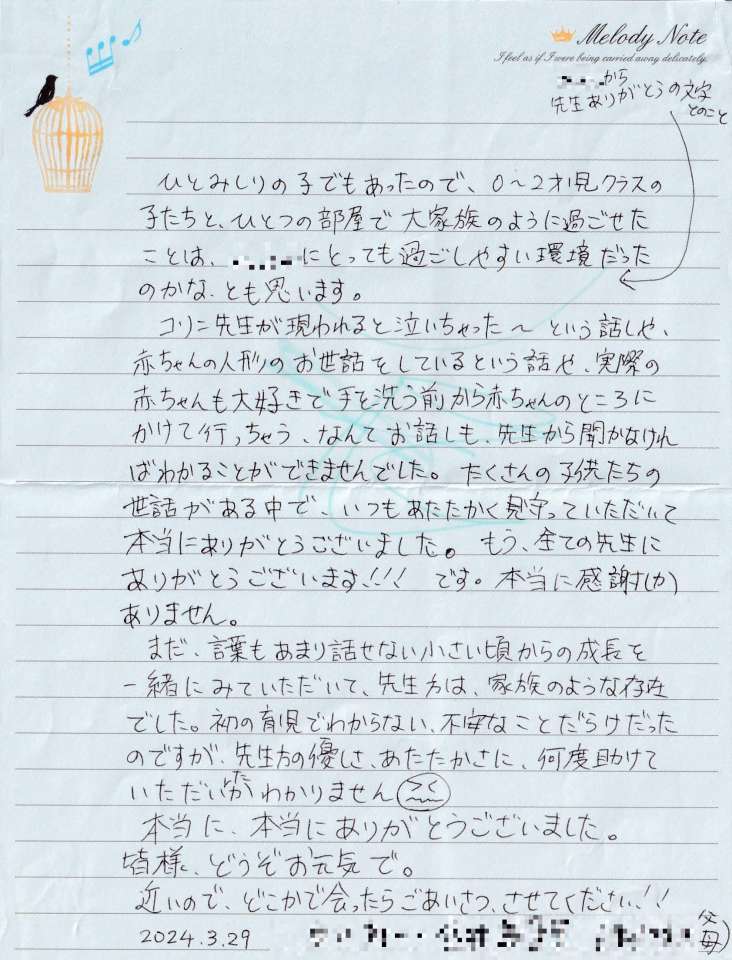 Melody Note
I feel as if I were being carried away delicately.
から
先生ありがとうの文字
とのこと
ひとみしりの子でもあったので、0～2才児クラスの
子たちと、ひとつの部屋で大家族のように過ごせた
ことは、にとっても過ごしやすい環境だった
のかな、とも思います。
コリン先生が現われると泣いちゃった～という話しや、
赤ちゃんの人形のお世話をしているという話や、実際の
赤ちゃんも大好きで手を洗う前から赤ちゃんのところに
かけて行っちゃう、なんてお話しも、先生から聞かなけれ
ばわかることができませんでした。たくさんの子供たちの
世話がある中で、いつもあたたかく見守っていただいて
本当にありがとうございました。もう、全ての先生に
ありがとうございます!!! です。本当に感謝しか
ありません。
まだ、言葉もあまり話せない小さい頃からの成長を
一緒にみていただいて、先生方は、家族のような存在
でした。初の育児でわからない、不安なことだらけだった
のですが、先生方の優しさ、あたたかさに、何度助けて
いただいたかわかりません
本当に、本当にありがとうございました。
皆様、どうぞお元気で。
近いので、どこかで会ったらごあいさつ、させてください!!
2024.3.29
父
母)